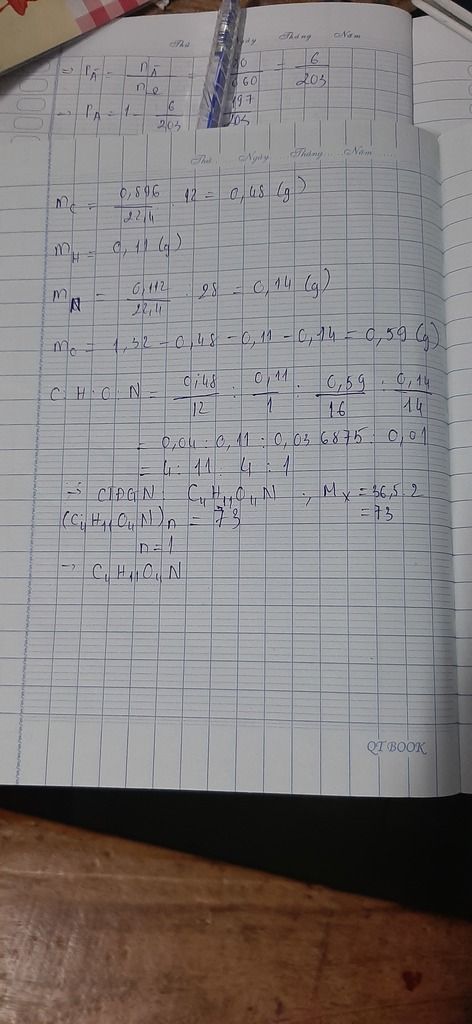 Thứ Ngày Tháng Năm
=> PĀ = nĀ / ne = 6 / 203
-> PA = 1 - 6 / 203 = 197
Thứ Ngày Tháng Năm
mC = 0,896 / 22,4 . 12 = 0,48 (g)
mH = 0,11 (g)
mN = 0,112 / 22,4 . 28 = 0,14 (g)
mO = 1,32 - 0,48 - 0,11 - 0,14 = 0,59 (g)
C : H : O : N = 0,48 / 12 : 0,11 / 1 : 0,59 / 16 : 0,14 / 14
= 0,04 : 0,11 : 0,036875 : 0,01
= 4 : 11 : 4 : 1
=> CTĐGN : C4H11O4N ; MX = 36,5 . 2
(C4H11O4N)n = 73 = 73
n = 1
-> C4H11O4N
QT BOOK